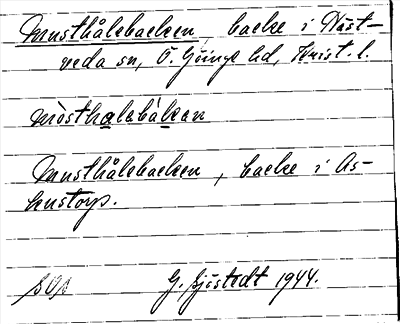 Musthålebacken, backe i Näst-
veda sn, Ö. Göinge hd, Krist. l.
mòsthalebàkan
Musthålebacken, backe i As-
kustorp.
SOs G. Sjöstedt 1944.